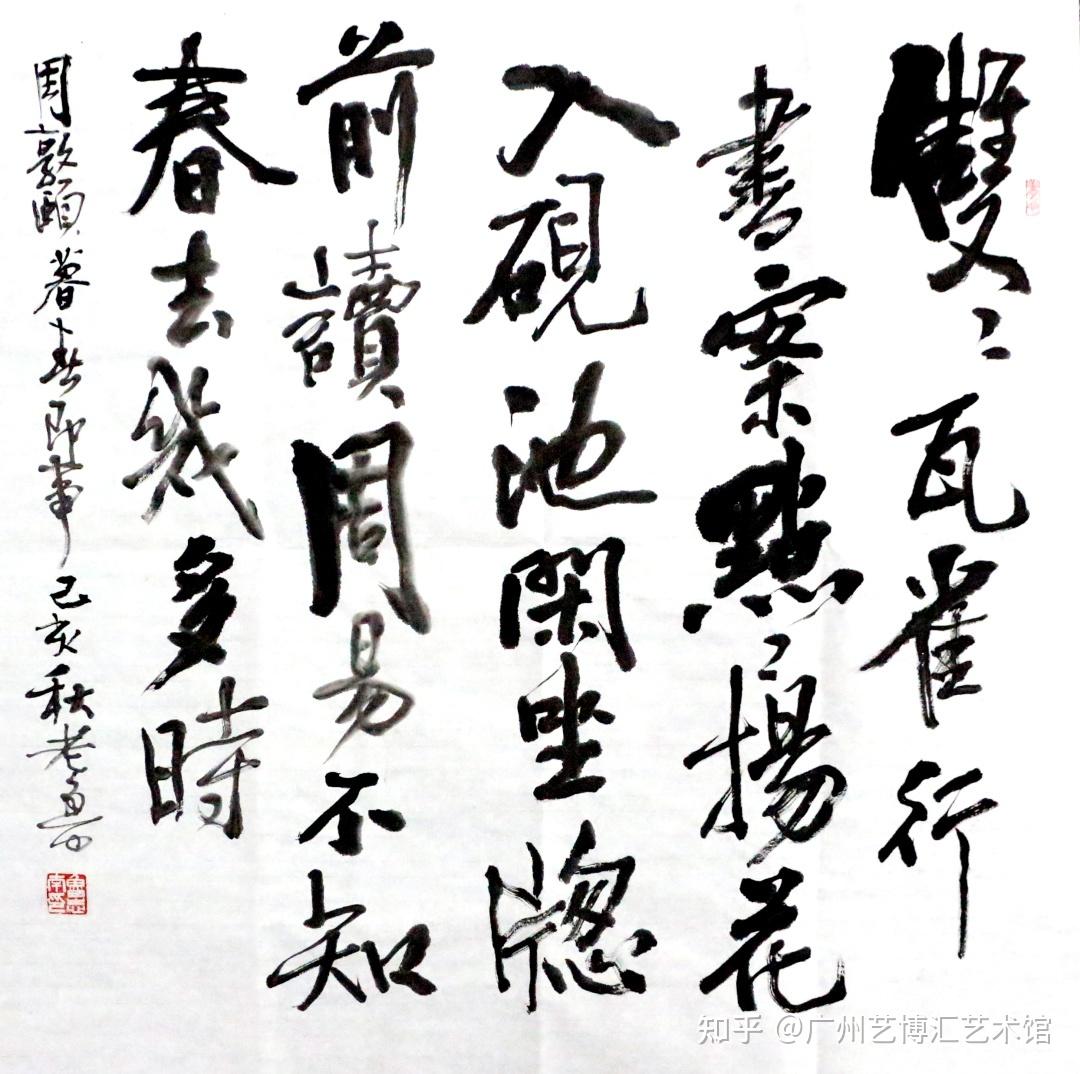 雙〻瓦雀行
書案點〻揚花
入硯池閑坐牕
前讀周易不知
春去幾多時
周敦頤暮春即事己亥秋老魯
知乎 @广州艺博汇艺术馆